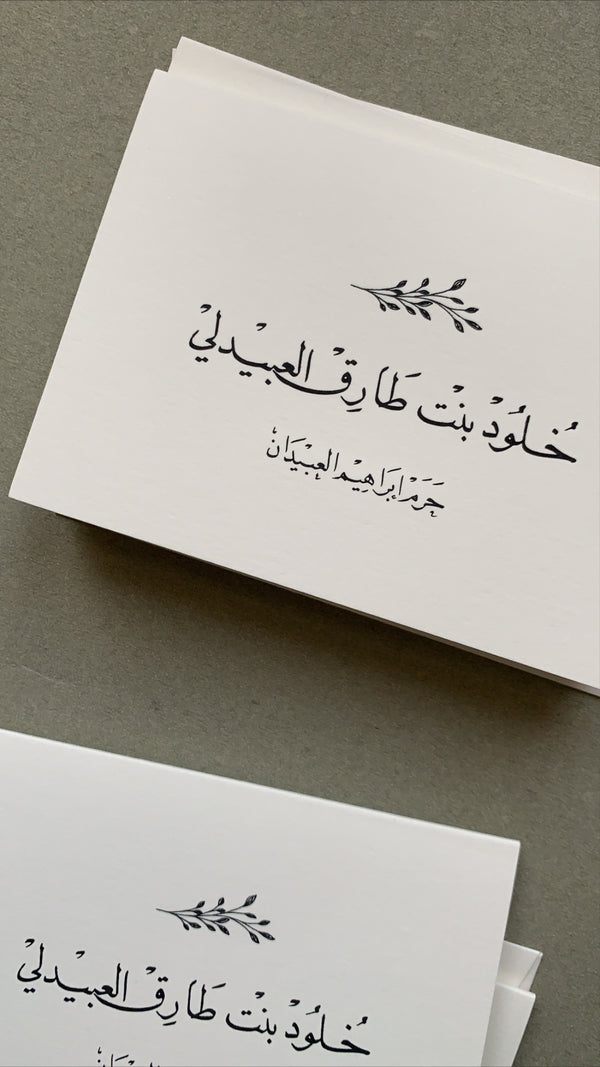 خُلُودْ بنْت طَارِقْ العبيْدليْ
حَرَمْ ابرَاهِيْم العبيْدَانْ
خُلُودْ بنْت طَارِقْ العبيْدليْ